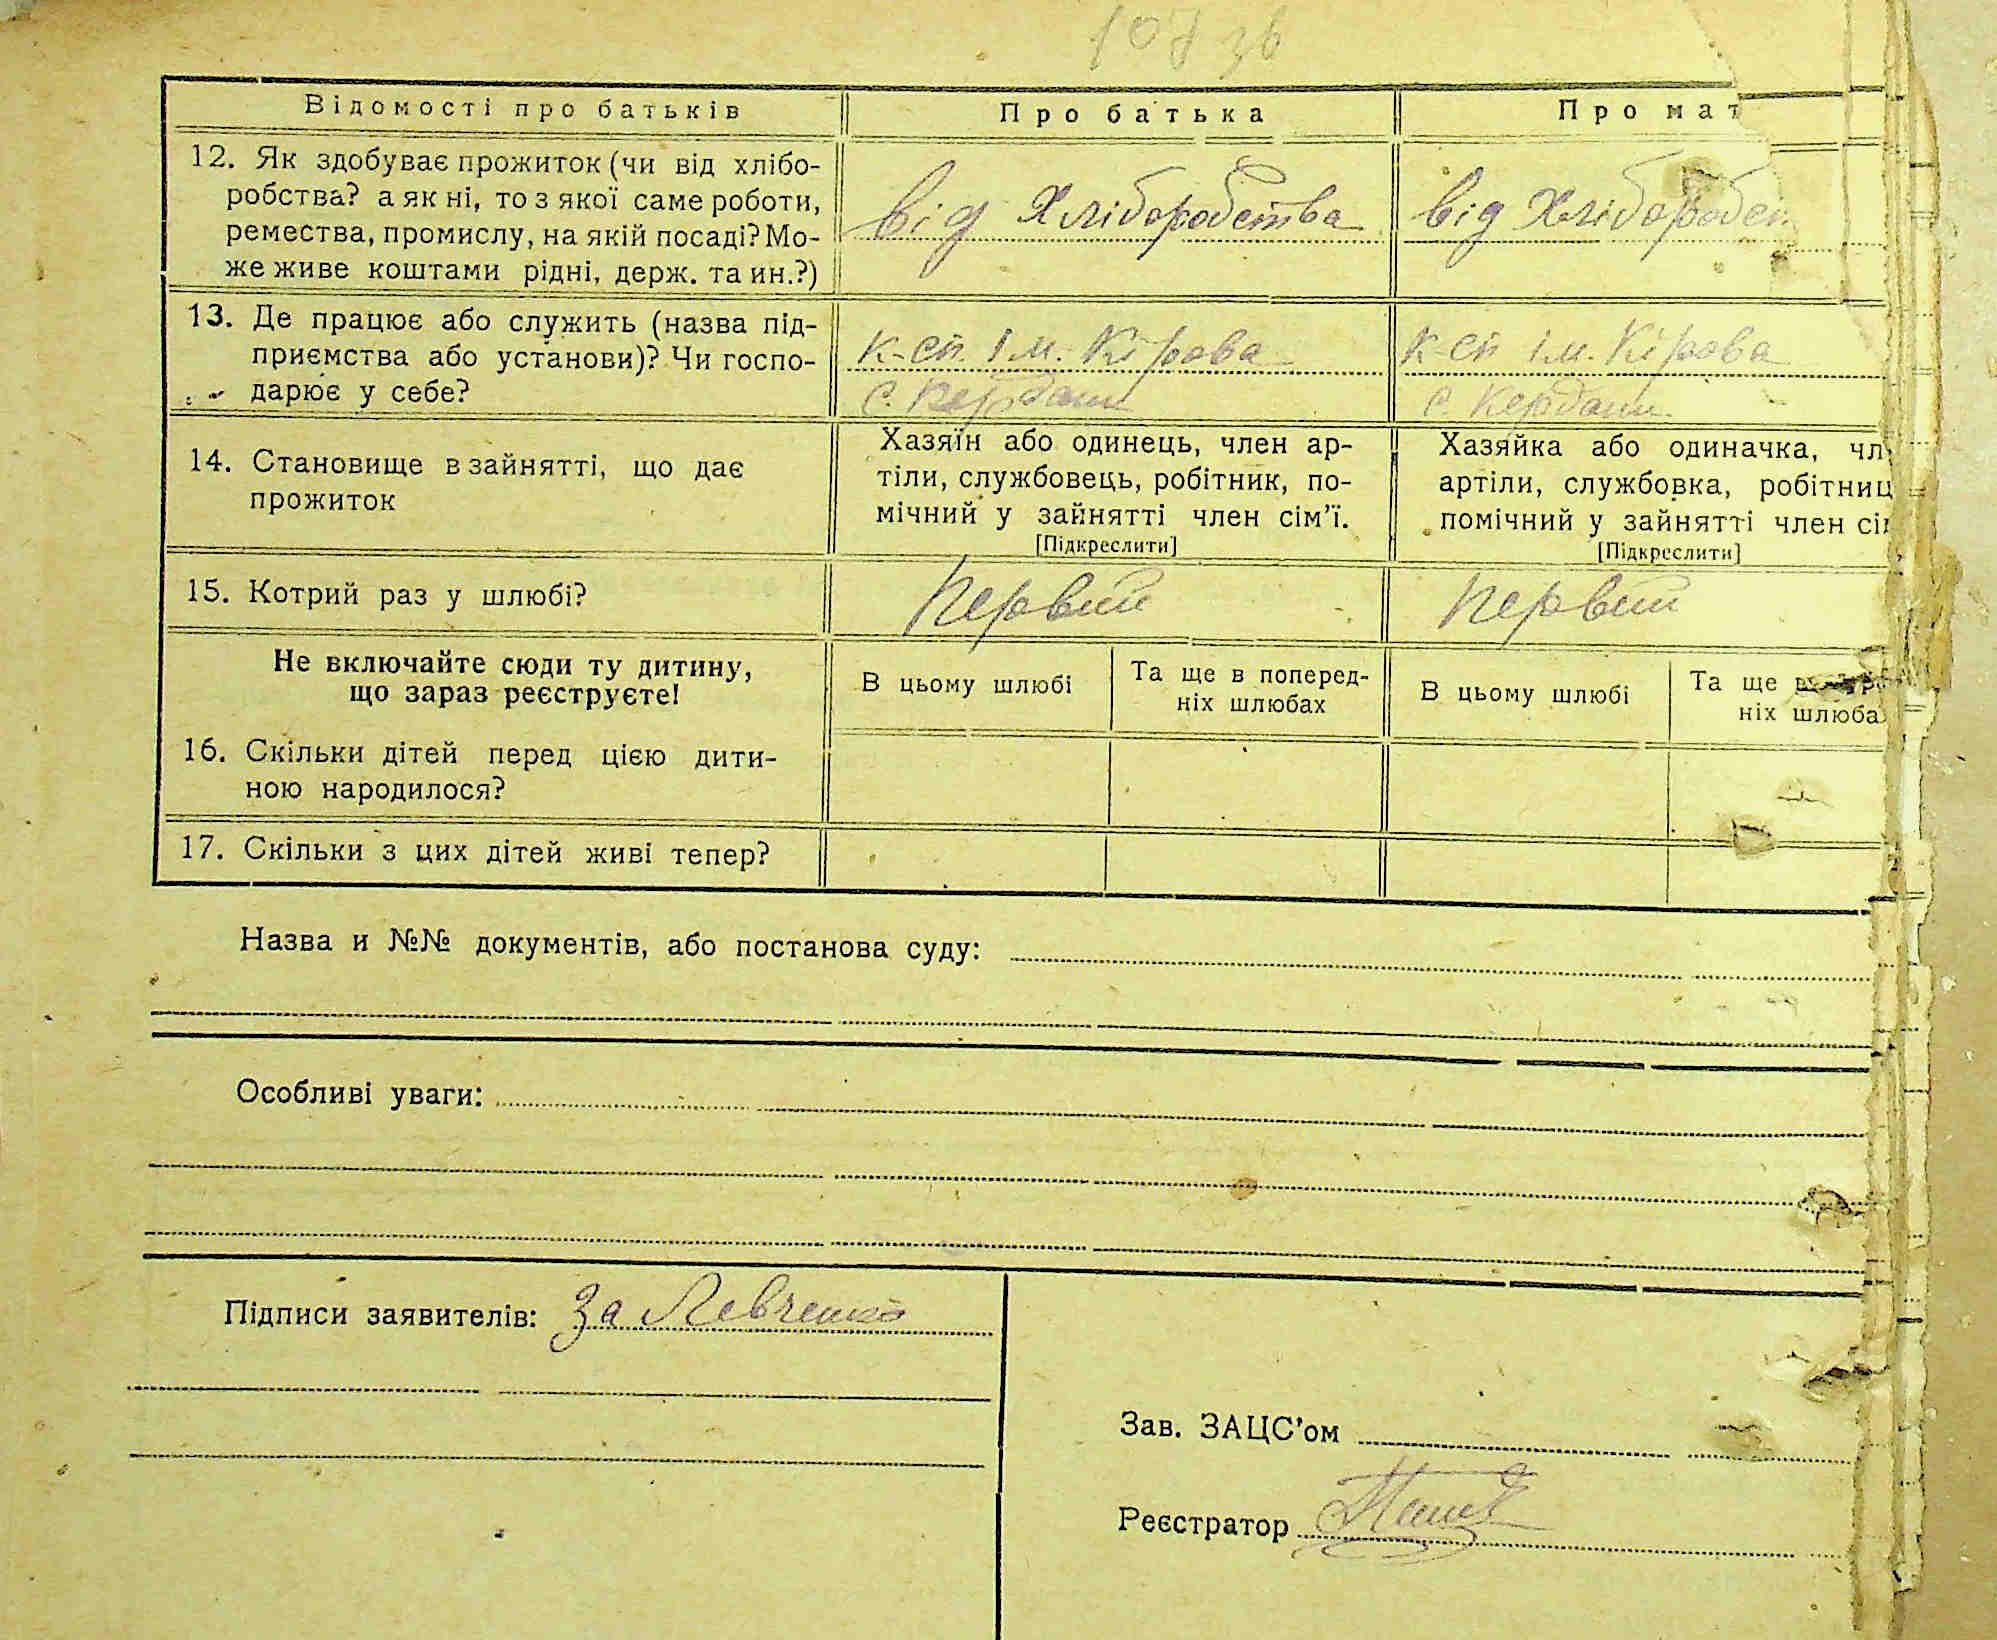 107 зв
Відомості про батьків
Про батька
Про мат
12. Як здобуває прожиток (чи від хлібо-
робства? а як ні, то з якої саме роботи,
ремества, промислу, на якій посаді? Мо-
же живе коштами рідні, держ. та ин.?)
від Хліборобства
від Хліборобст
13. Де працює або служить (назва під-
приємства або установи)? Чи госпо-
дарює у себе?
к-сп. ім. Кірова
с. Кердани
к-сп ім. Кірова
с. Кердани
14. Становище в зайнятті, що дає
прожиток
Хазяїн або одинець, член ар-
тіли, службовець, робітник, по-
мічний у зайнятті член сім’ї.
[Підкреслити]
Хазяйка або одиначка, чл
артіли, службовка, робітниц
помічний у зайнятті член сі
[Підкреслити]
15. Котрий раз у шлюбі?
Первий
Первий
Не включайте сюди ту дитину,
що зараз реєструєте!
В цьому шлюбі
Та ще в поперед-
ніх шлюбах
В цьому шлюбі
Та ще в
ніх шлюба
16. Скільки дітей перед цією дити-
ною народилося?
17. Скільки з цих дітей живі тепер?
Назва и №№ документів, або постанова суду:
Особливі уваги:
Підписи заявителів: За Левченко
Зав. ЗАЦС’ом
Реєстратор